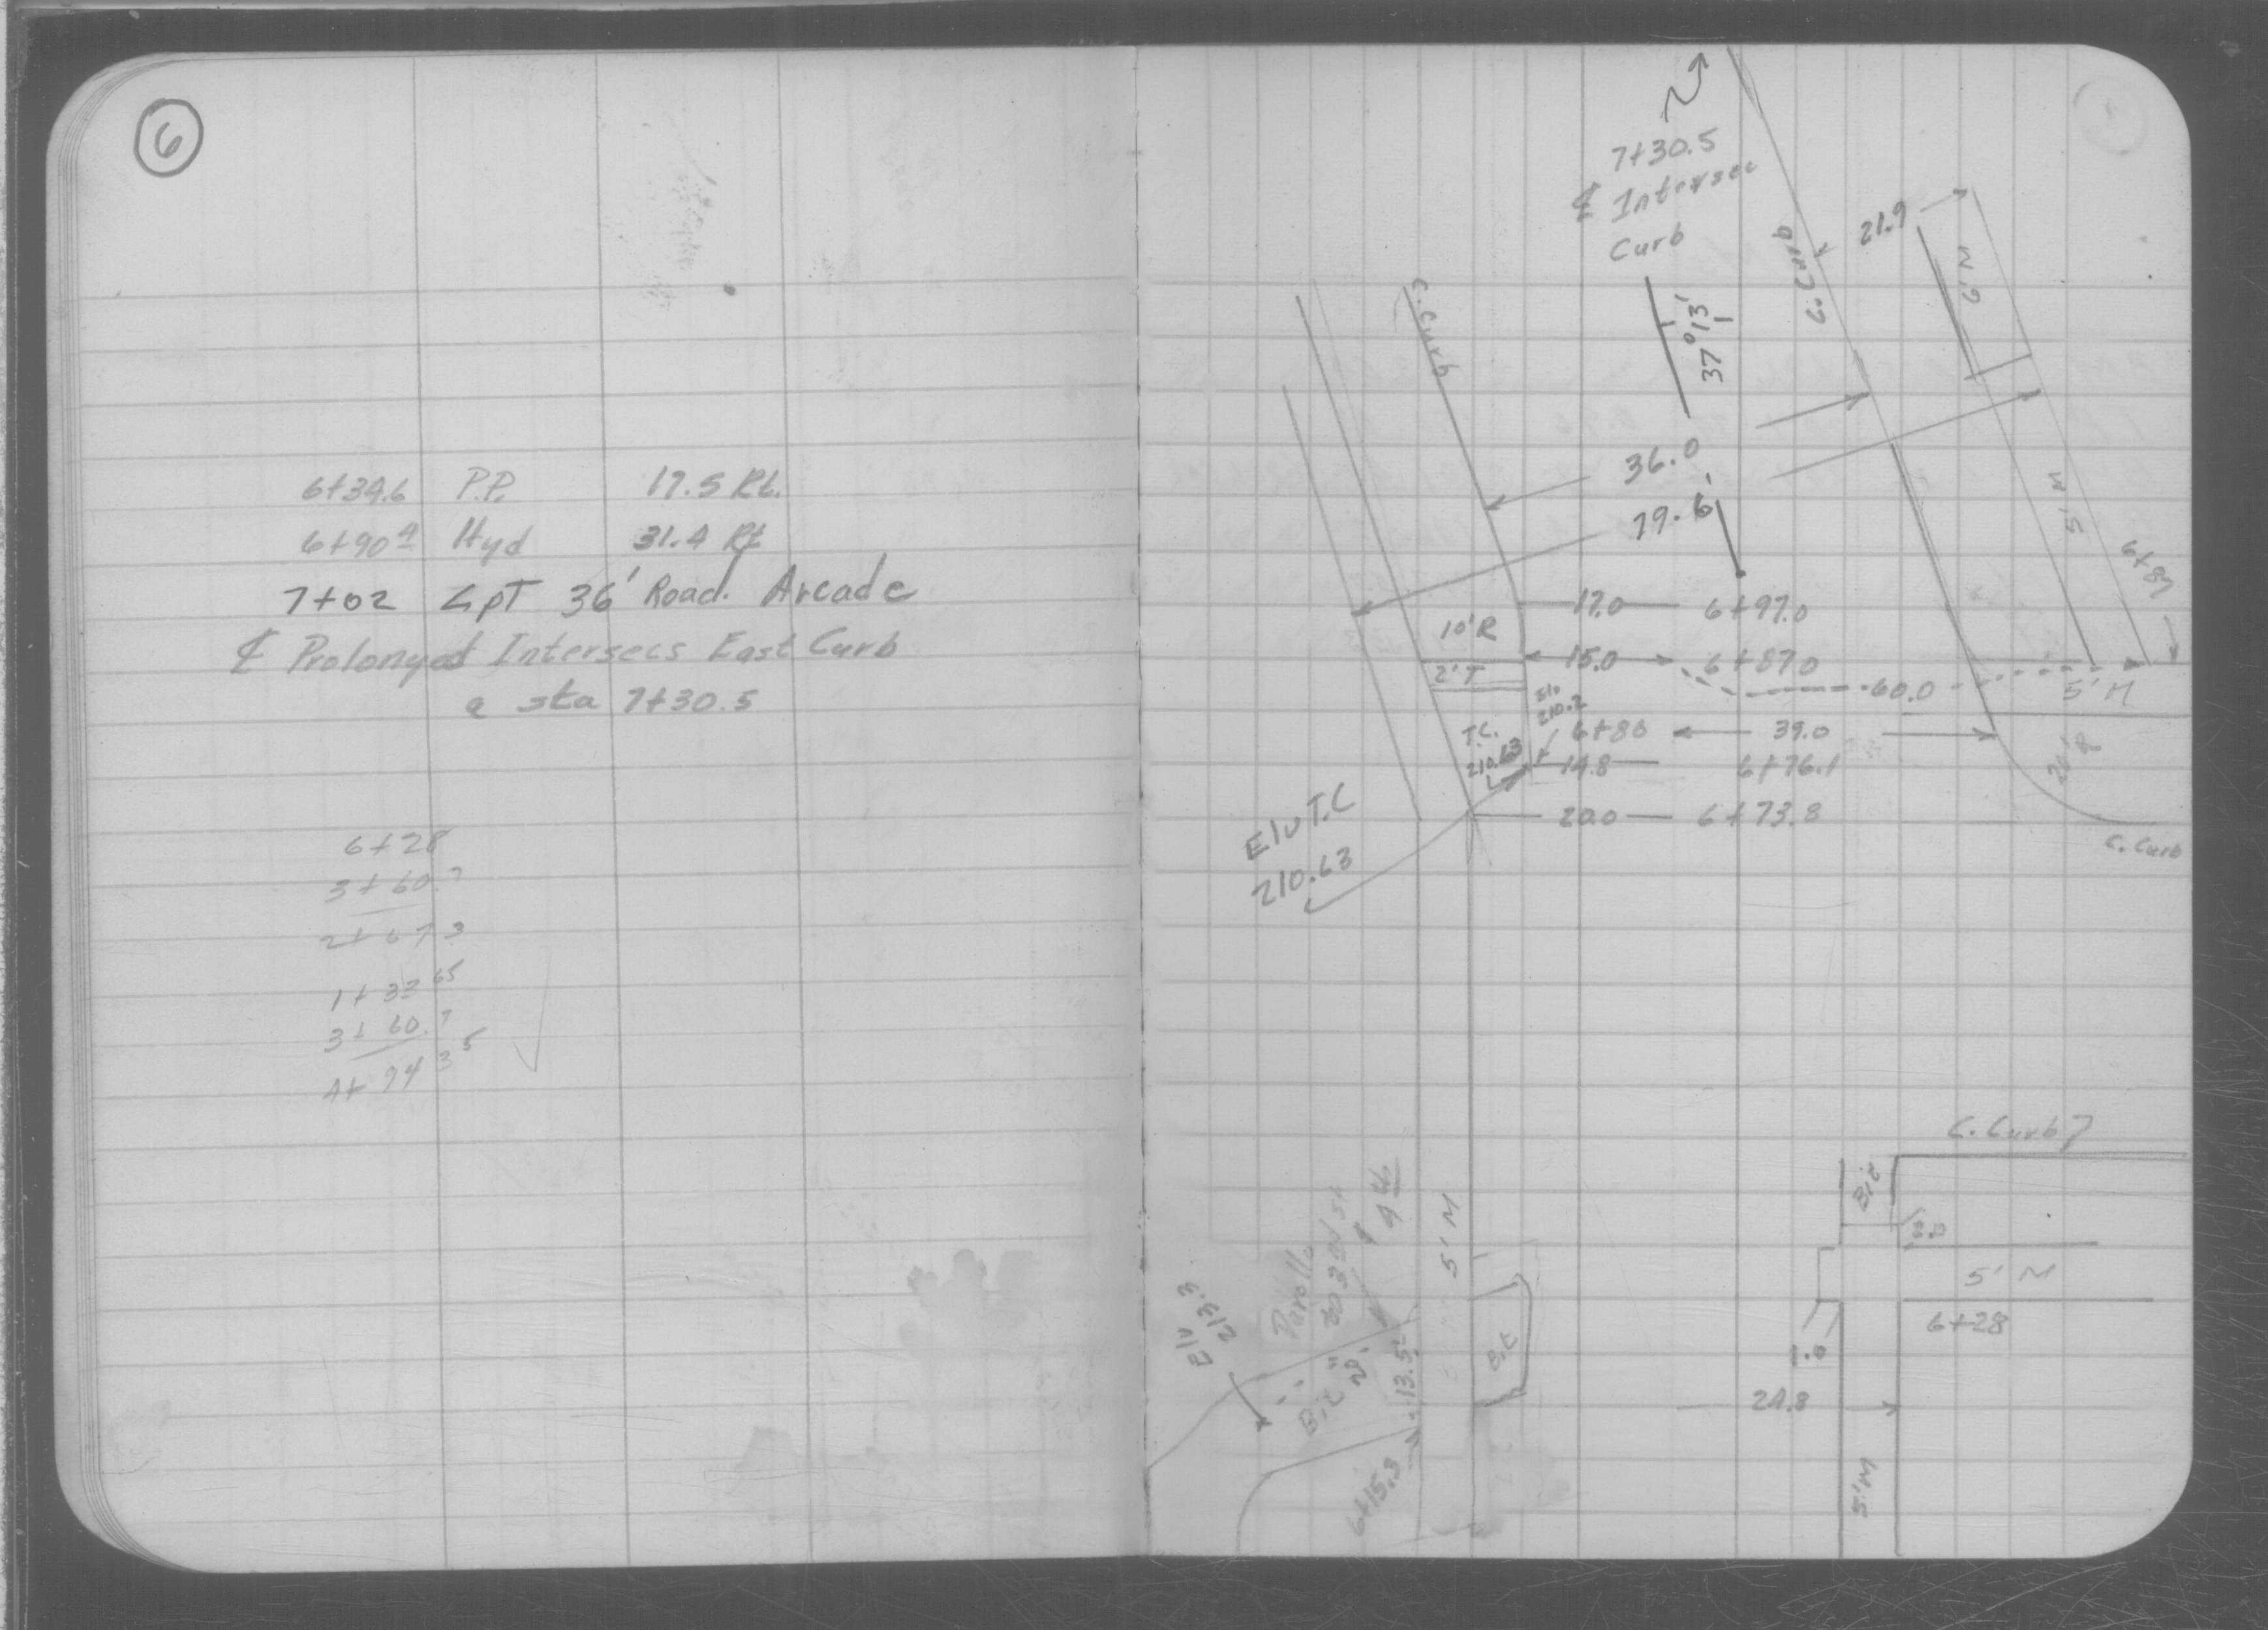 6
6+34.6 P.P. 17.5 Rt.
6+90 4 Hyd 31.4 Rt
7+02 36' Road. Arcade
℄ Prolonged Intersecs East Curb
@ sta 7+30.5
6+28
3+60.7
2+67 3
1+33 65
3+60.7
4+94 35
7+30.5
℄ Intersec
Curb
C. Curb
21.9
6'M
C. Curb
37°13'
36.0
79.6
5' M
10'R
17.0 6+97.0
2'T
15.0 6+87.0
60.0
5' M
Elv
210.2
T.C.
210.63
6+80 39.0
14.8 6+76.1
20.0 6+73.8
Elv T.C
210.63
C. Curb
C. Curb
Bit
5' M
5' M
6+28
Elv
213.3
Bit
13.5
24.8
6+15.3
5'M